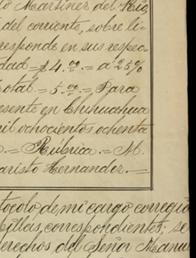 Martinez del Rio
del corriente, sobre li-
responde en sus respec-
dad = $4.00 = a 25%
total = 5.00 = Para
esente en Chihuahua
mil ochocientos ochenta
= Rubrica. = M.
aristo Hernandez.
tocolo de mi cargo corregio
correspondientes; se
derechos del Señor Manu